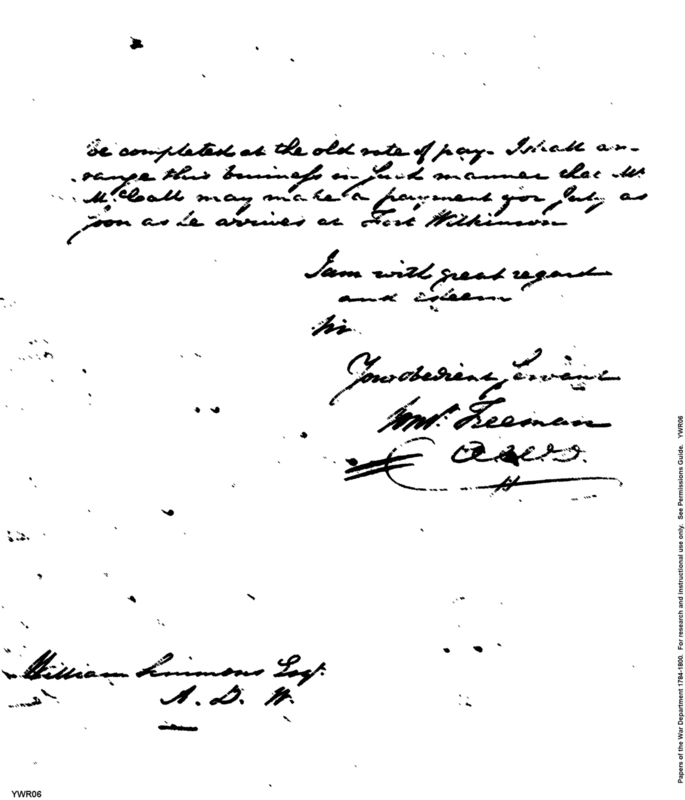 be completed at the old rate of pay. I shall ar-
range this business in such manner that Mr
McCall may make a payment for July as
soon as he arrives at Fort Wilkinson
I am with great regard
and esteem
Sir
Your obedient Servant
Freeman
William Simmons Esqr.
A. D. W.
YWR06
Papers of the War Department 1784-1800. For research and instructional use only. See Permissions Guide. YWR06